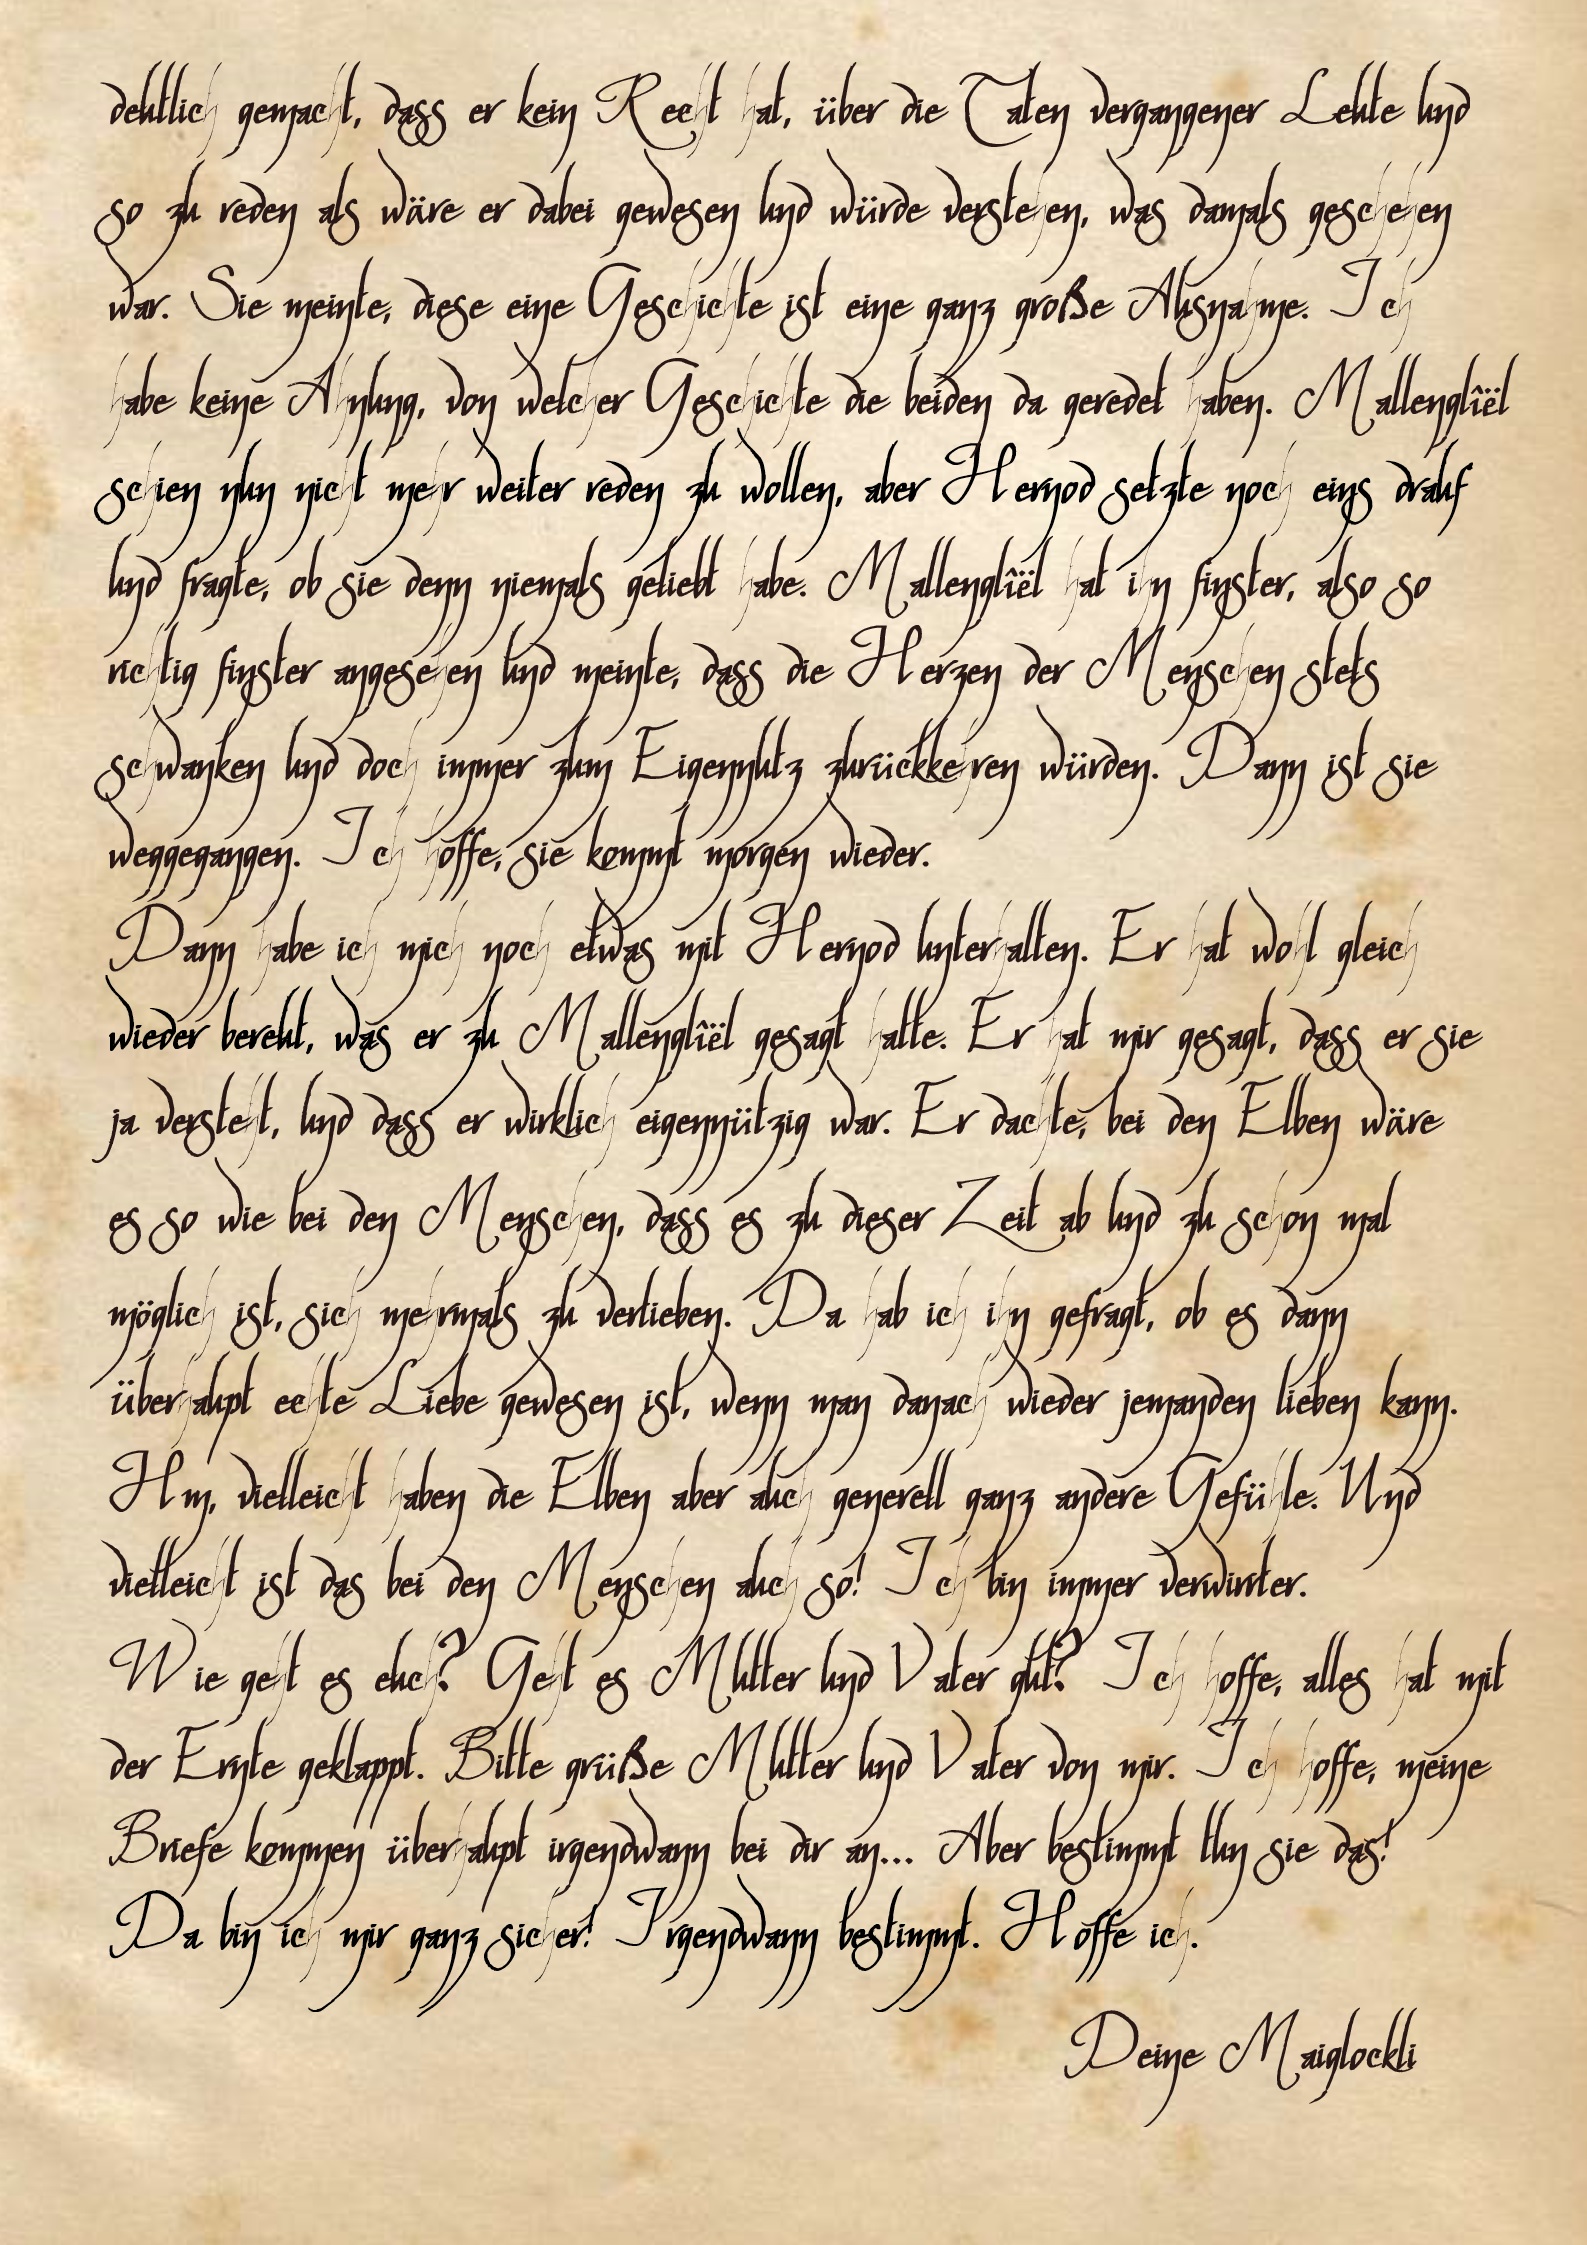 deutlich gemacht, dass er kein Recht hat, über die Taten vergangener Leute und
so zu reden als wäre er dabei gewesen und würde verstehen, was damals geschehen
war. Sie meinte, diese eine Geschichte ist eine ganz große Ausnahme. Ich
habe keine Ahnung, von welcher Geschichte die beiden da geredet haben. Mallenglîël
schien nun nicht mehr weiter reden zu wollen, aber Hernod setzte noch eins drauf
und fragte, ob sie denn niemals geliebt habe. Mallenglîël hat ihn finster, also so
richtig finster angesehen und meinte, dass die Herzen der Menschen stets
schwanken und doch immer zum Eigennutz zurückkehren würden. Dann ist sie
weggegangen. Ich hoffe, sie kommt morgen wieder.
Dann habe ich mich noch etwas mit Hernod unterhalten. Er hat wohl gleich
wieder bereut, was er zu Mallenglîël gesagt hatte. Er hat mir gesagt, dass er sie
ja versteht, und dass er wirklich eigennützig war. Er dachte, bei den Elben wäre
es so wie bei den Menschen, dass es zu dieser Zeit ab und zu schon mal
möglich ist, sich mehrmals zu verlieben. Da hab ich ihn gefragt, ob es dann
überhaupt echte Liebe gewesen ist, wenn man danach wieder jemanden lieben kann.
Hm, vielleicht haben die Elben aber auch generell ganz andere Gefühle. Und
vielleicht ist das bei den Menschen auch so! Ich bin immer verwirrter.
Wie geht es euch? Geht es Mutter und Vater gut? Ich hoffe, alles hat mit
der Ernte geklappt. Bitte grüße Mutter und Vater von mir. Ich hoffe, meine
Briefe kommen überhaupt irgendwann bei dir an... Aber bestimmt tun sie das!
Da bin ich mir ganz sicher! Irgendwann bestimmt. Hoffe ich.
Deine Maiglockli